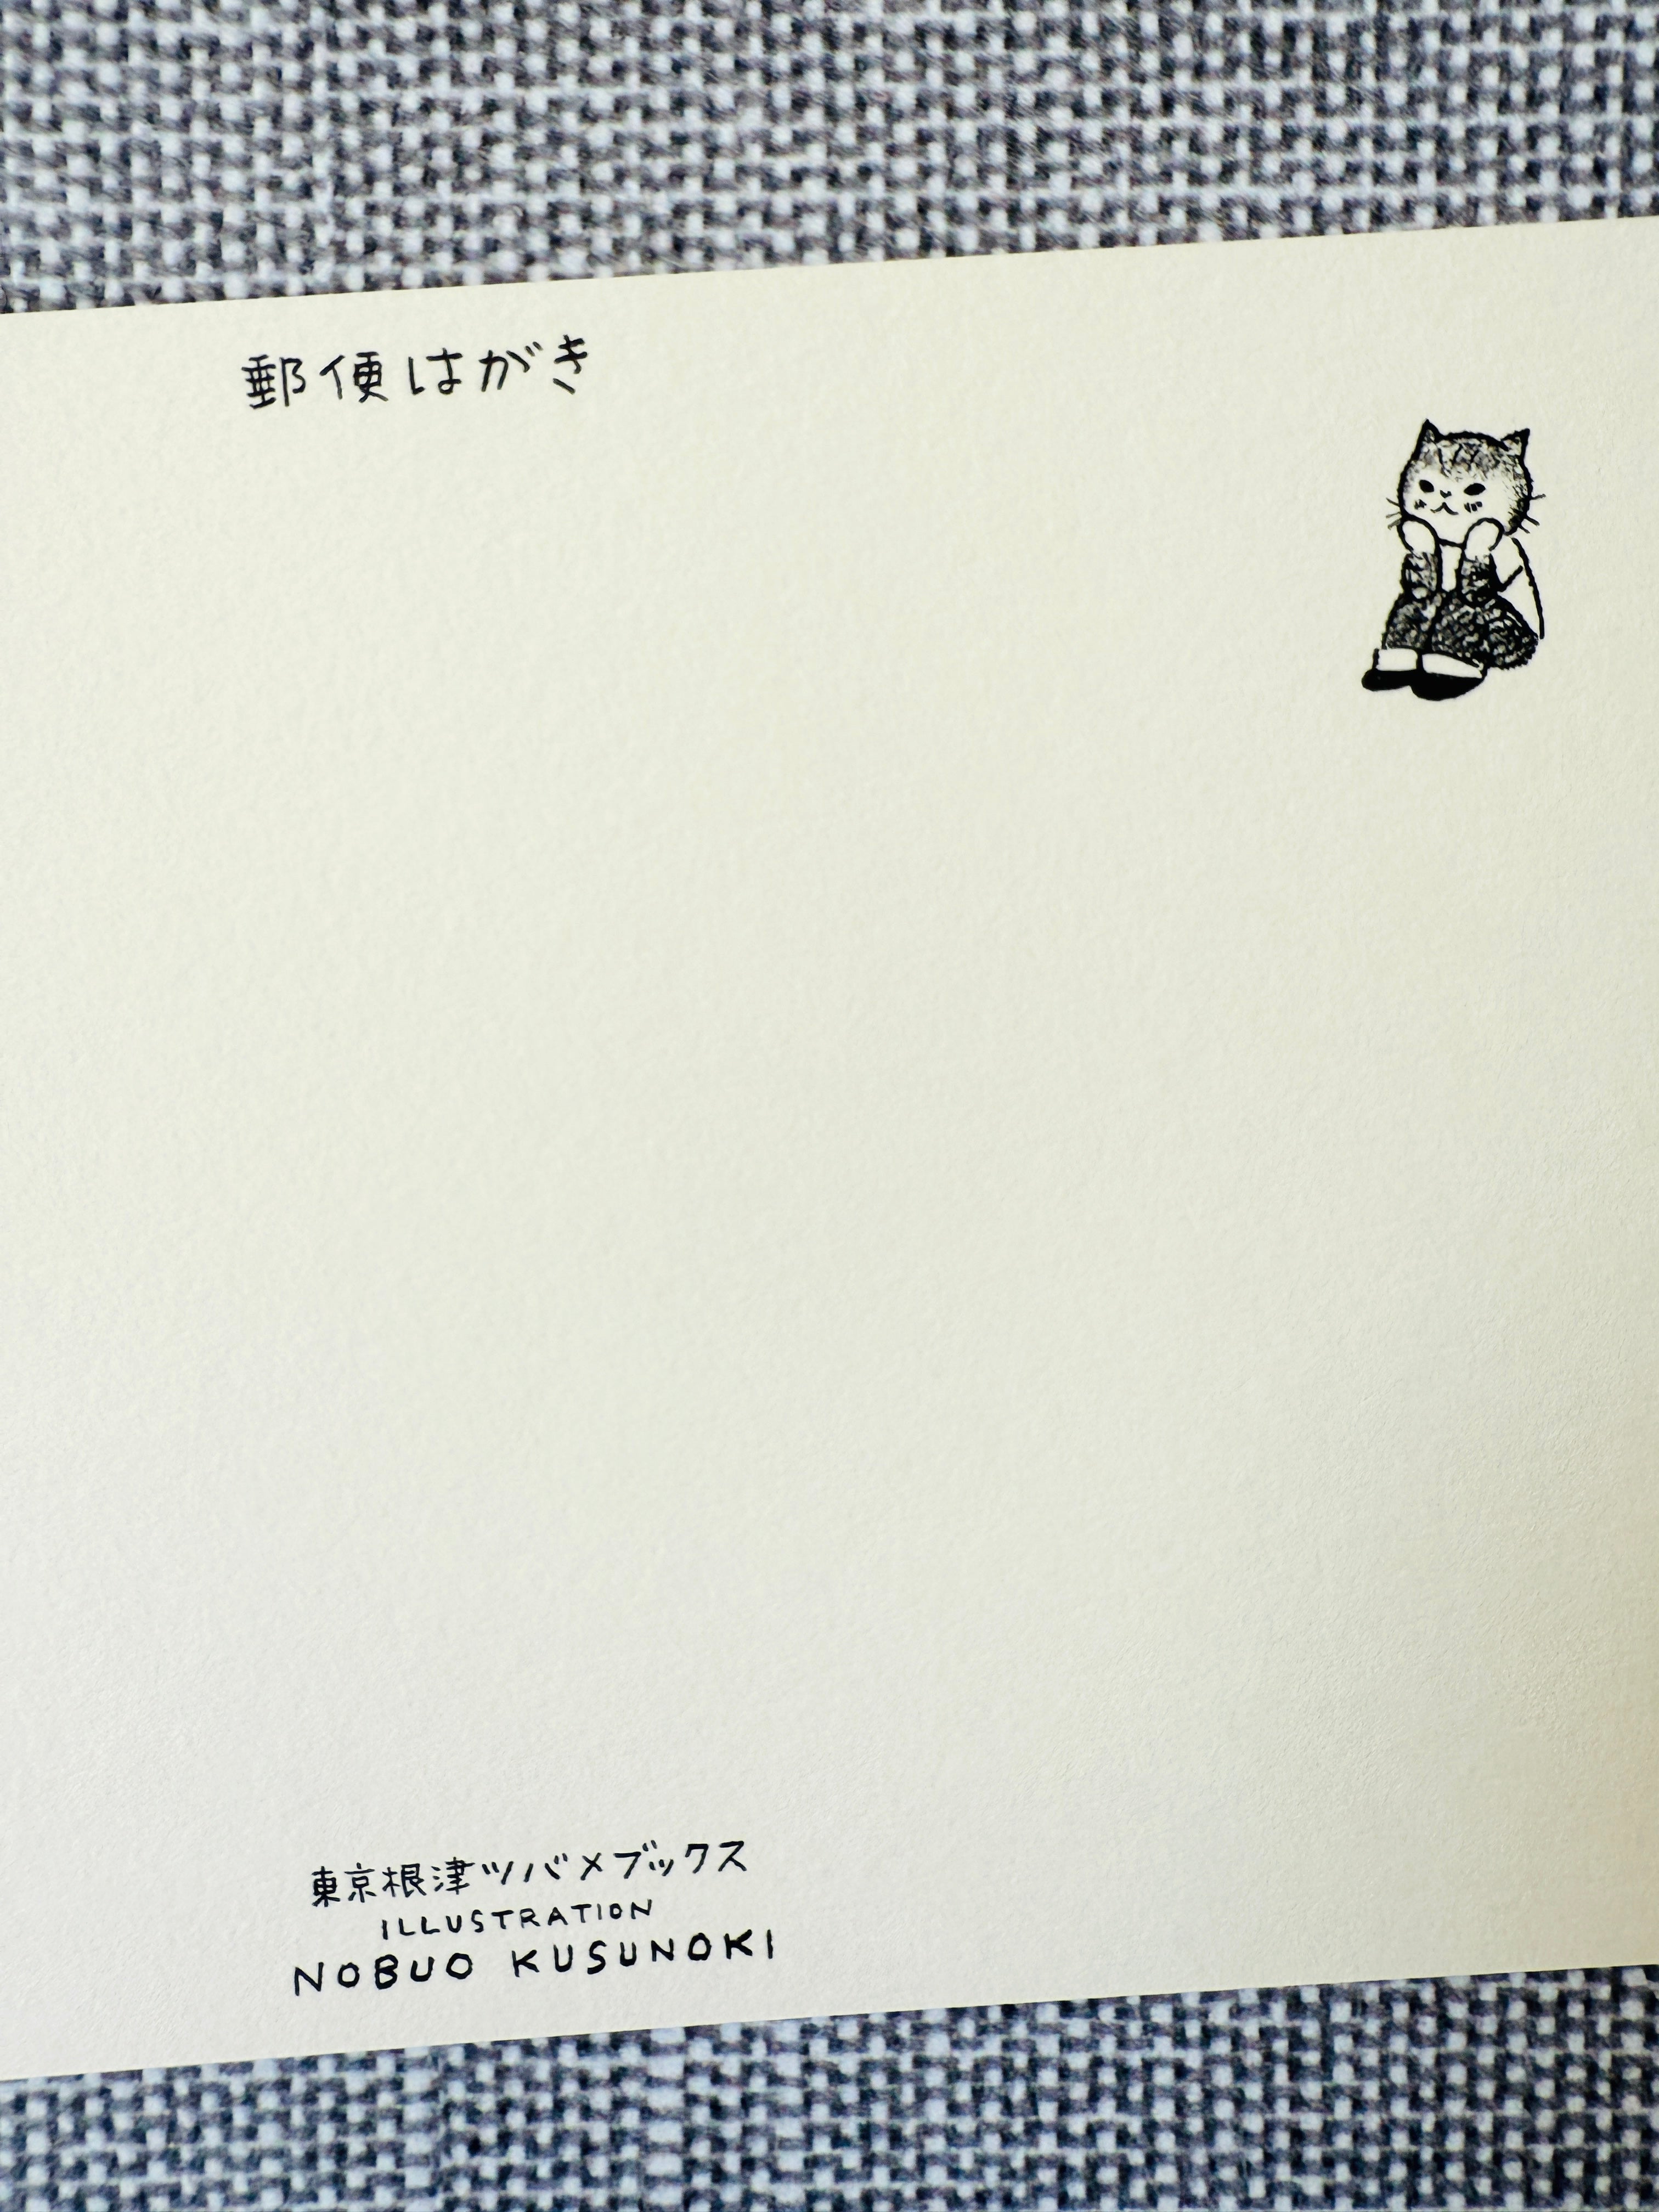 郵便はがき
東京根津ツバメブックス
ILLUSTRATION
NOBUO KUSUNOKI